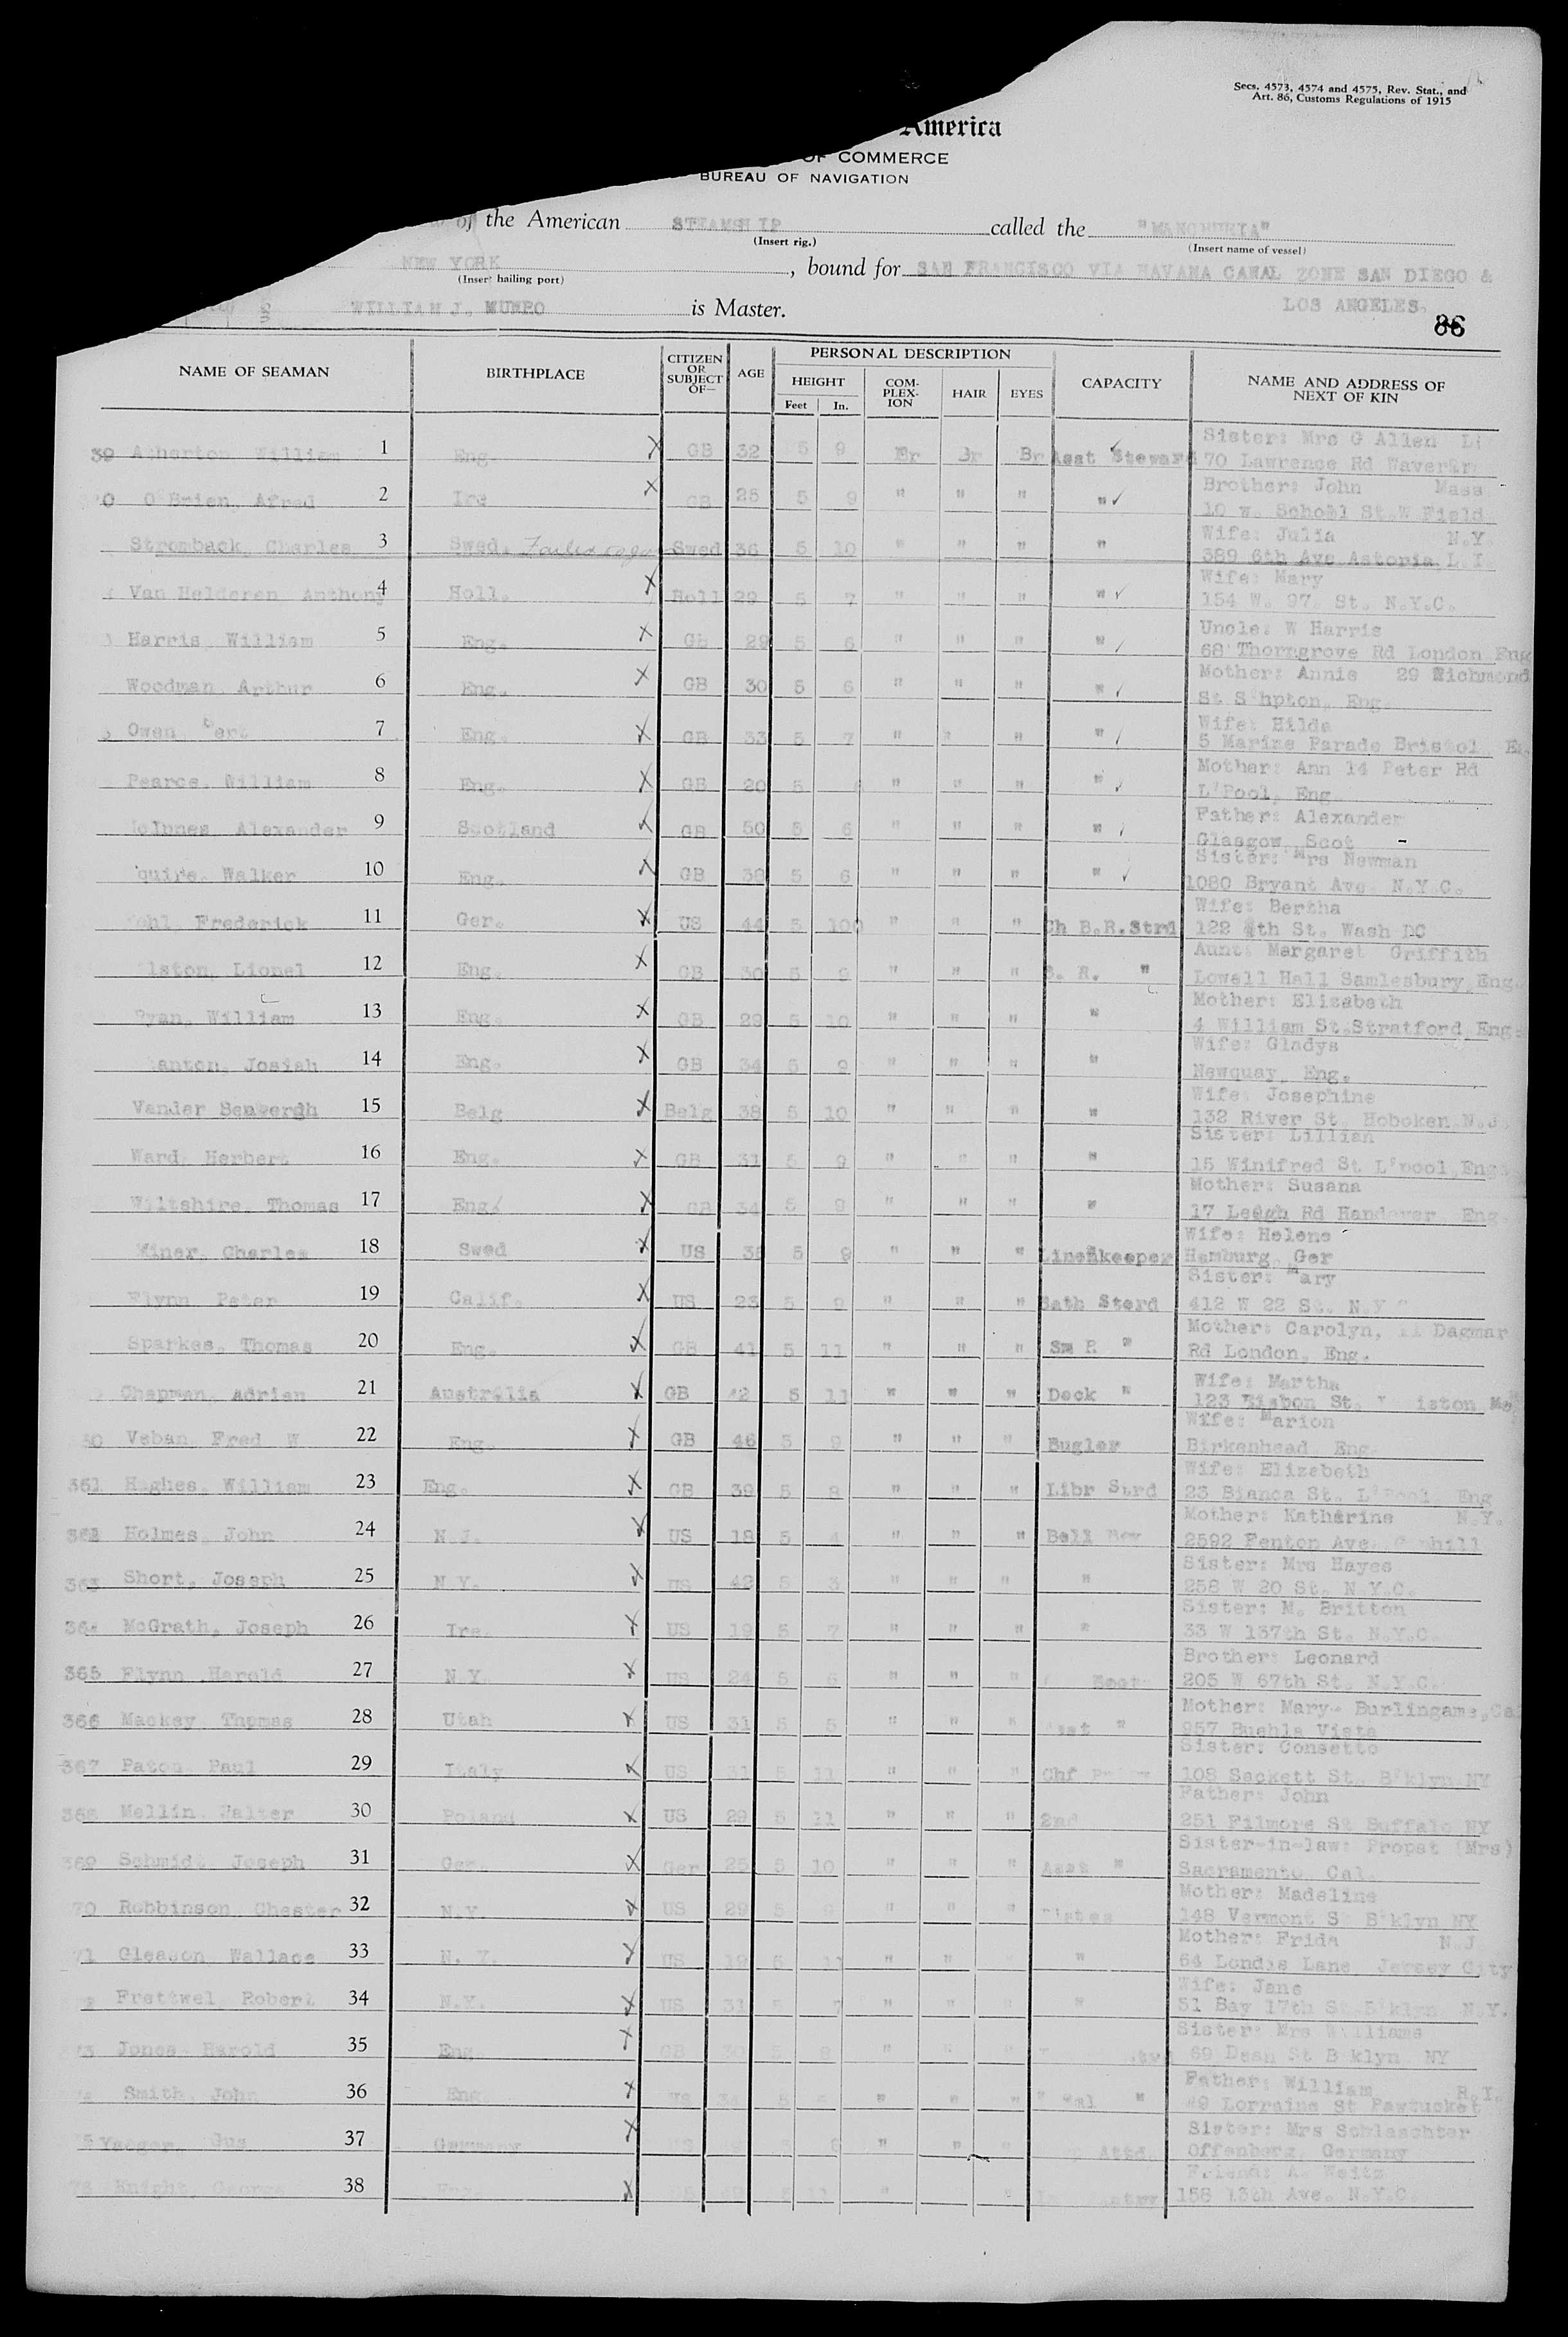 Secs. 4573, 4574 and 4575, Rev. Stat., and
Art. 86, Customs Regulations of 1915
America
OF COMMERCE
BUREAU OF NAVIGATION
of the American STEAMSHIP called the "MANCHURIA"
(Insert rig.) (Insert name of vessel)
NEW YORK , bound for SAN FRANCISCO VIA HAVANA CANAL ZONE SAN DIEGO &
(Insert hailing port)
WILLIAM J. MUNRO is Master. LOS ANGELES.
86
NAME OF SEAMAN BIRTHPLACE CITIZEN OR SUBJECT OF— AGE PERSONAL DESCRIPTION CAPACITY NAME AND ADDRESS OF NEXT OF KIN
HEIGHT COM-PLEX-ION HAIR EYES
Feet In.
Sister: Mrs G Allen
39 Atherton William 1 Eng. X GB 32 5 9 Br Br Br Asst Steward 70 Lawrence Rd
Brother: John Mass
0 O'Brien, Afred 2 Ire X GB 25 5 9 " " " " ✓ 10 w. School St.W Field
Wife: Julia N.Y.
Stromback, Charles 3 Swed. Swed 36 5 10 " " " " 389 6th Ave Astoria, L.I.
Wife: Mary
Van Helderen Anthony 4 Holl. X Holl 29 5 7 " " " " ✓ 154 W. 97. St. N.Y.C.
Uncle: W Harris
Harris, William 5 Eng. X GB 29 5 6 " " " " ✓ 68 Thorngrove Rd London Eng
Mother: Annie 29 Richmond
Woodman, Arthur 6 Eng. X GB 30 5 6 " " " " ✓ St S'hpton, Eng.
Wife: Hilda
Owen, Bert 7 Eng. X GB 33 5 7 " " " " ✓ 5 Marine Parade Bristol,
Mother: Ann 14 Peter Rd
Pearce, William 8 Eng. X GB 20 5 " " " " ✓ L'Pool, Eng
Father: Alexander
McInnes, Alexander 9 Scotland X GB 50 5 6 " " " " ✓ Glasgow, Scot
Sister: Mrs Newman
quire, Walker 10 Eng. X GB 38 5 6 " " " " ✓ 1080 Bryant Ave. N.Y.C.
Wife: Bertha
ohl, Frederick 11 Ger. X US 44 5 10 " " " Ch B.R.Strd 122 4th St. Wash DC
Aunt: Margaret Griffith
lston, Lionel 12 Eng. X GB 30 5 9 " " " B. R. " Lowell Hall Samlesbury, Eng.
Mother: Elizabeth
Ryan, William 13 Eng. X GB 29 5 10 " " " " 4 William St.Stratford, Eng.
Wife: Gladys
anton, Josiah 14 Eng. X GB 34 5 9 " " " " Newquay, Eng.
Wife: Josephine
Vander 15 Belg X Belg 38 5 10 " " " " 132 River St. Hoboken N.J.
Sister: Lillian
Ward, Herbert 16 Eng. X GB 31 5 9 " " " " 15 Winifred St L'pool, Eng
Mother: Susana
Wiltshire, Thomas 17 Eng. X GB 34 5 9 " " " " 17 Leigh Rd Handover, Eng.
Wife: Helene
Miner, Charles 18 Swed X US 5 9 " " " Linenkeeper Hamburg, Ger
Sister: Mary
Flynn, Peter 19 Calif. X US 23 5 9 " " " Bath Sterd 412 W 22 St. N.Y
Mother: Carolyn, 11 Dagmar
Sparkes, Thomas 20 Eng. X GB 41 5 11 " " " Sm R " Rd London, Eng.
Wife: Martha
Chapman, Adrian 21 Australia X GB 42 5 11 " " " Deck " 123 Lisbon St. iston Me
Wife: Marion
Veban, Fred W 22 Eng. X GB 46 5 9 " " " Bugler Birkenhead, Eng.
Wife: Elizabeth
361 Hughes, William 23 Eng. X GB 39 5 8 " " " Libr Strd 23 Bianca St. L'Pool, Eng
Mother: Katharine N.Y.
362 Holmes, John 24 N.J. X US 18 5 4 " " " Bell Boy 2592 Fenton Ave.
Sister: Mrs Hayes
363 Short, Joseph 25 N.Y. X US 42 5 3 " " " " 258 W 20 St. N.Y.C.
Sister: M. Britton
364 McGrath, Joseph 26 Ire. X US 19 5 7 " " " " 33 W 137th St. N.Y.C.
Brother: Leonard
365 Flynn, Harold 27 N.Y. X US 24 5 6 " " " 205 W 67th St. N.Y.C.
Mother: Mary- Burlingame,Cal
366 Mackey, Thomas 28 Utah X US 31 5 5 " " " " 957 Buehla Vista
Sister: Consetto
367 Paton Paul 29 Italy X US 31 5 11 " " " Chf 108 Sackett St. B'klyn NY
Father: John
368 Mellin, Walter 30 Poland X US 29 5 11 " " " 2nd 251 Filmore St Buffalo NY
Sister-in-law: Propst (Mrs)
369 Schmidt, Joseph 31 Ger. X Ger 25 5 10 " " " Asst " Sacramento, Cal.
Mother: Madeline
70 Robbinson, Chester 32 N.Y. X US 29 5 9 " " " 148 Vermont St B'klyn NY
Mother: Frida N.J
71 Gleason, Wallace 33 N. Y. X US 19 5 11 " " " 64 Londis Lane, Jersey City
Wife: Jane
Frettwel, Robert 34 N.Y. X US 31 5 7 " " " " 51 Bay 17th St.B'klyn, N.Y.
Sister: Mrs Williams
Jones, Harold 35 Eng X GB 30 5 8 " " " 69 Dean St B klyn, NY
Father: William R.I.
Smith, John 36 Eng. X 5 " " " " Lorraine St Pawtucket
Sister: Mrs Schlaechter
Yaeger, Gus 37 Germany X " " " Attd. Offenberg, Germany
Friend: A. Weitz
Knight, George 38 Eng. X 5 11 " " 158 13th Ave. N.Y.C.